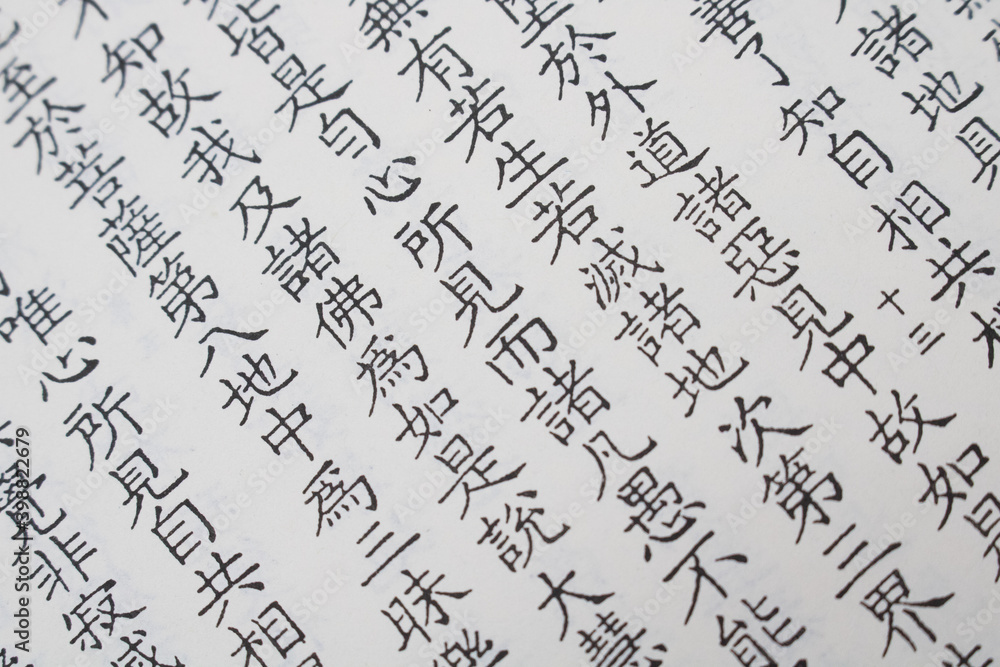 諸地具
善了知自相共相
十三
墮於外道諸惡見中故如是
無有若生若滅諸地次第三界
皆是自心所見而諸凡愚不能
知故我及諸佛爲如是說大慧
至於菩薩第八地中爲三昧樂
唯心所見自共相
見非寂滅
Adobe Stock | #398822679